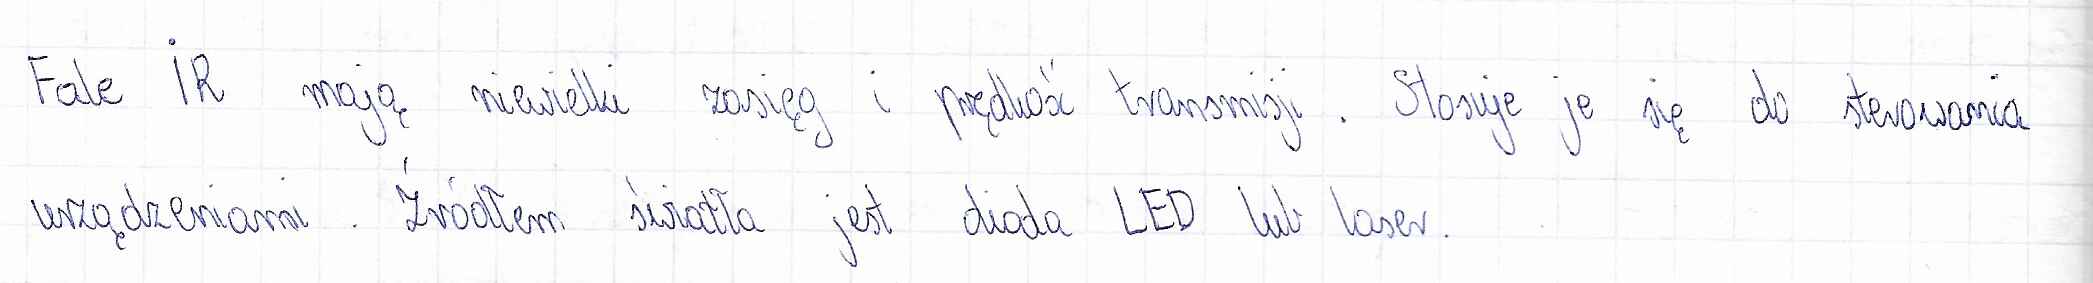 Fale IR mają niewielki zasięg i prędkość transmisji. Stosuje je się do sterowania
urządzeniami. Źródłem światła jest dioda LED lub laser.